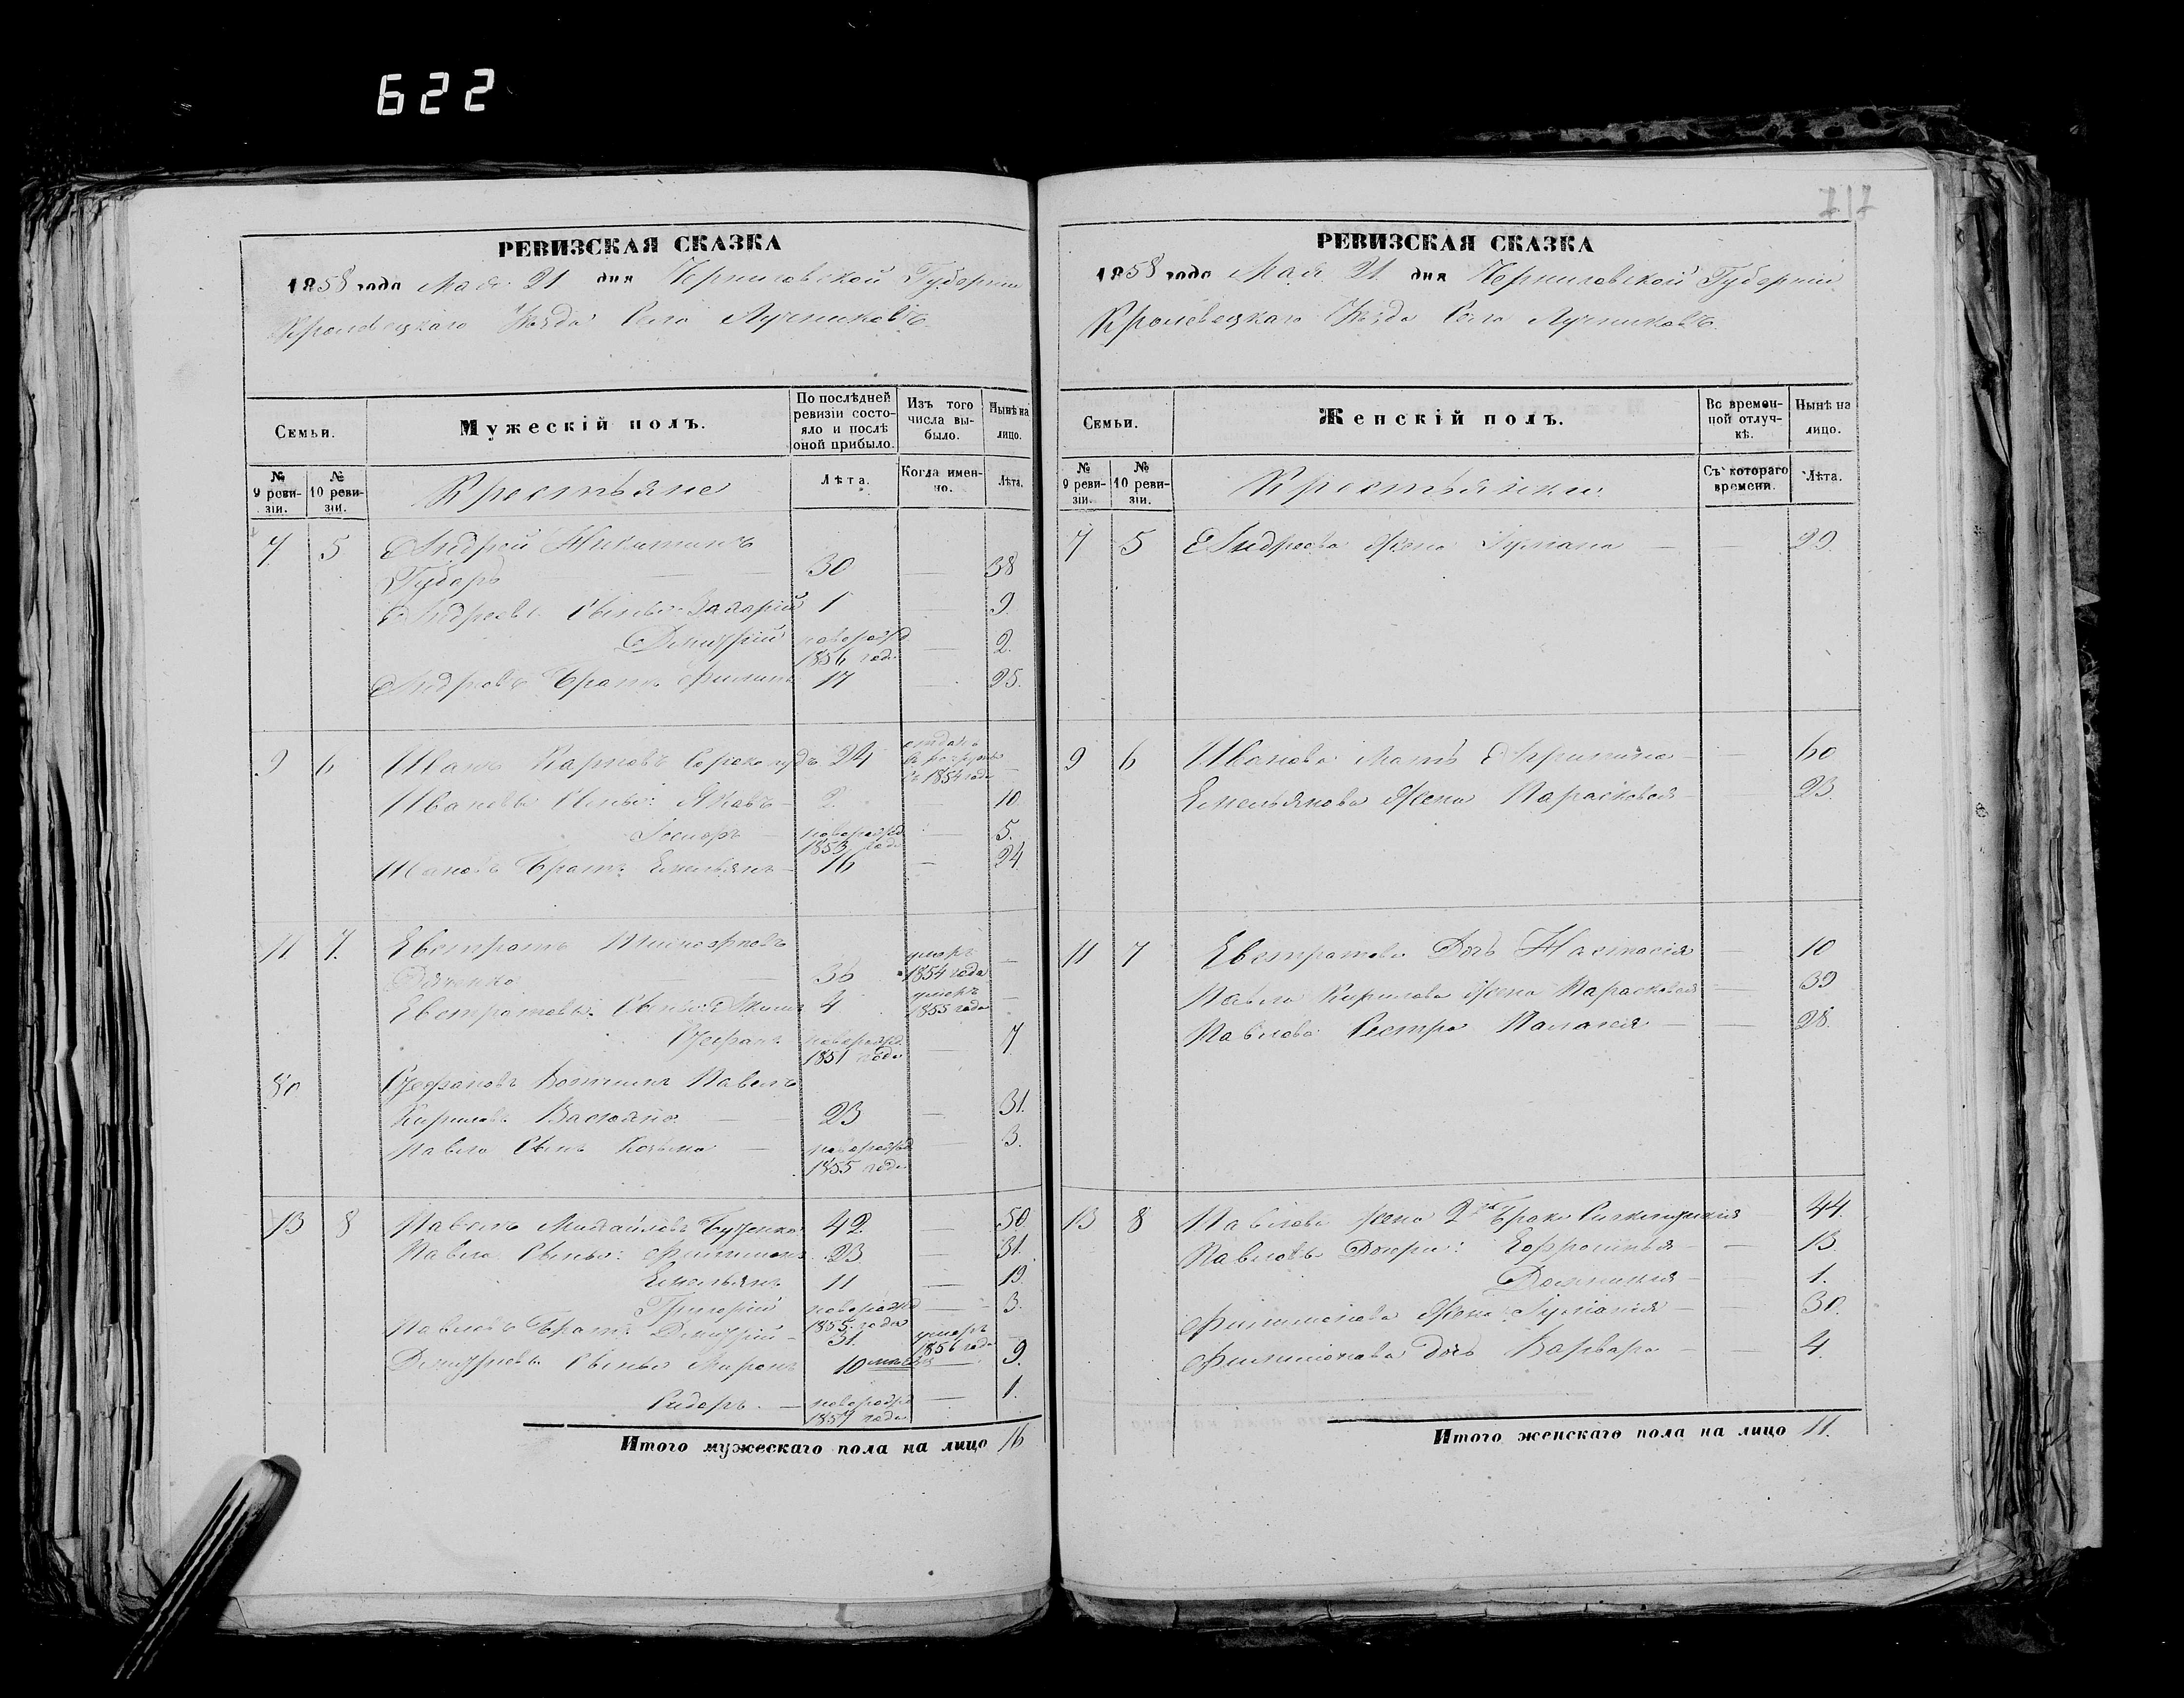 622
717
РЕВИЗСКАЯ СКАЗКА
1858 года Мая 21 дня Черниговской Губерніи
Кролевецкаго Уѣзда Села Лучниковъ
Семьи.
Мужескій полъ.
По послѣдней ревизіи состояло и послѣ оной прибыло.
Изъ того числа выбыло.
Нынѣ на лицо.
№ 9 ревизіи.
№ 10 ревизіи.
Крестьяне
Лѣта.
Когда именно.
Лѣта.
7 5 Андрей Никитинъ
Губарь — 30 — 38
Андреевы Сыновья Захарій 1 — 9.
Дмитрій новорожд — 2.
1856 года
Андреевъ Братъ Филипъ 17 — 25.
9 6 Иванъ Карповъ 24 отданъ
въ рекруты
въ 1854 года —
Ивановы Сыновья: Яковъ 2. 10.
новорожд — 5.
1853 года
Ивановъ Братъ Емельянъ 16 — 24.
11 7. Евстратъ
Дяченко 36 умеръ
1854 года —
Евстратовы Сыновья: 4 умеръ
1855 года —
Стефанъ новорожд — 7
1851 года
80 Стефановъ Павелъ
Кириловъ — 23 — 31.
Павла Сынъ Козьма — новорожд — 3.
1855 года
13 8 Павелъ Михайловъ 42. — 50.
Павла Сыновья: Филимонъ 23 — 31.
Емельянъ 11 — 19.
Григорій новорожд — 3.
1855 года
Павловъ Братъ Дмитрій 31. умеръ
1856 года
Дмитріевы Сыновья Миронъ 10 — 9.
Сидоръ — новорожд — 1.
1857 года
Итого мужескаго пола на лицо 16
РЕВИЗСКАЯ СКАЗКА
1858 года Мая 21 дня Черниговской Губерніи
Кролевецкаго Уѣзда Села Лучниковъ
Семьи.
Женскій полъ.
Во временной отлучкѣ.
Нынѣ на лицо.
№ 9 ревизіи.
№ 10 ревизіи.
Крестьянки.
Съ котораго времени.
Лѣта.
7 5 Андреева Жена Іуліана — — 29.
9 6 Иванова Мать — 60
Емельянова Жена Парасковія — 23.
11 7 Евстратова Дочь Настасія — 10
Павла Кирилова Жена Парасковія — 39
Павлова Сестра Палагія — 28.
13 8 Павлова жена 2го Брака 44.
Павловы Дочери: Ефросинья — 13.
Домникія — 1.
Филимонова Жена Іуліанія — 30.
Филимонова дочь Варвара — 4.
Итого женскаго пола на лицо 11.